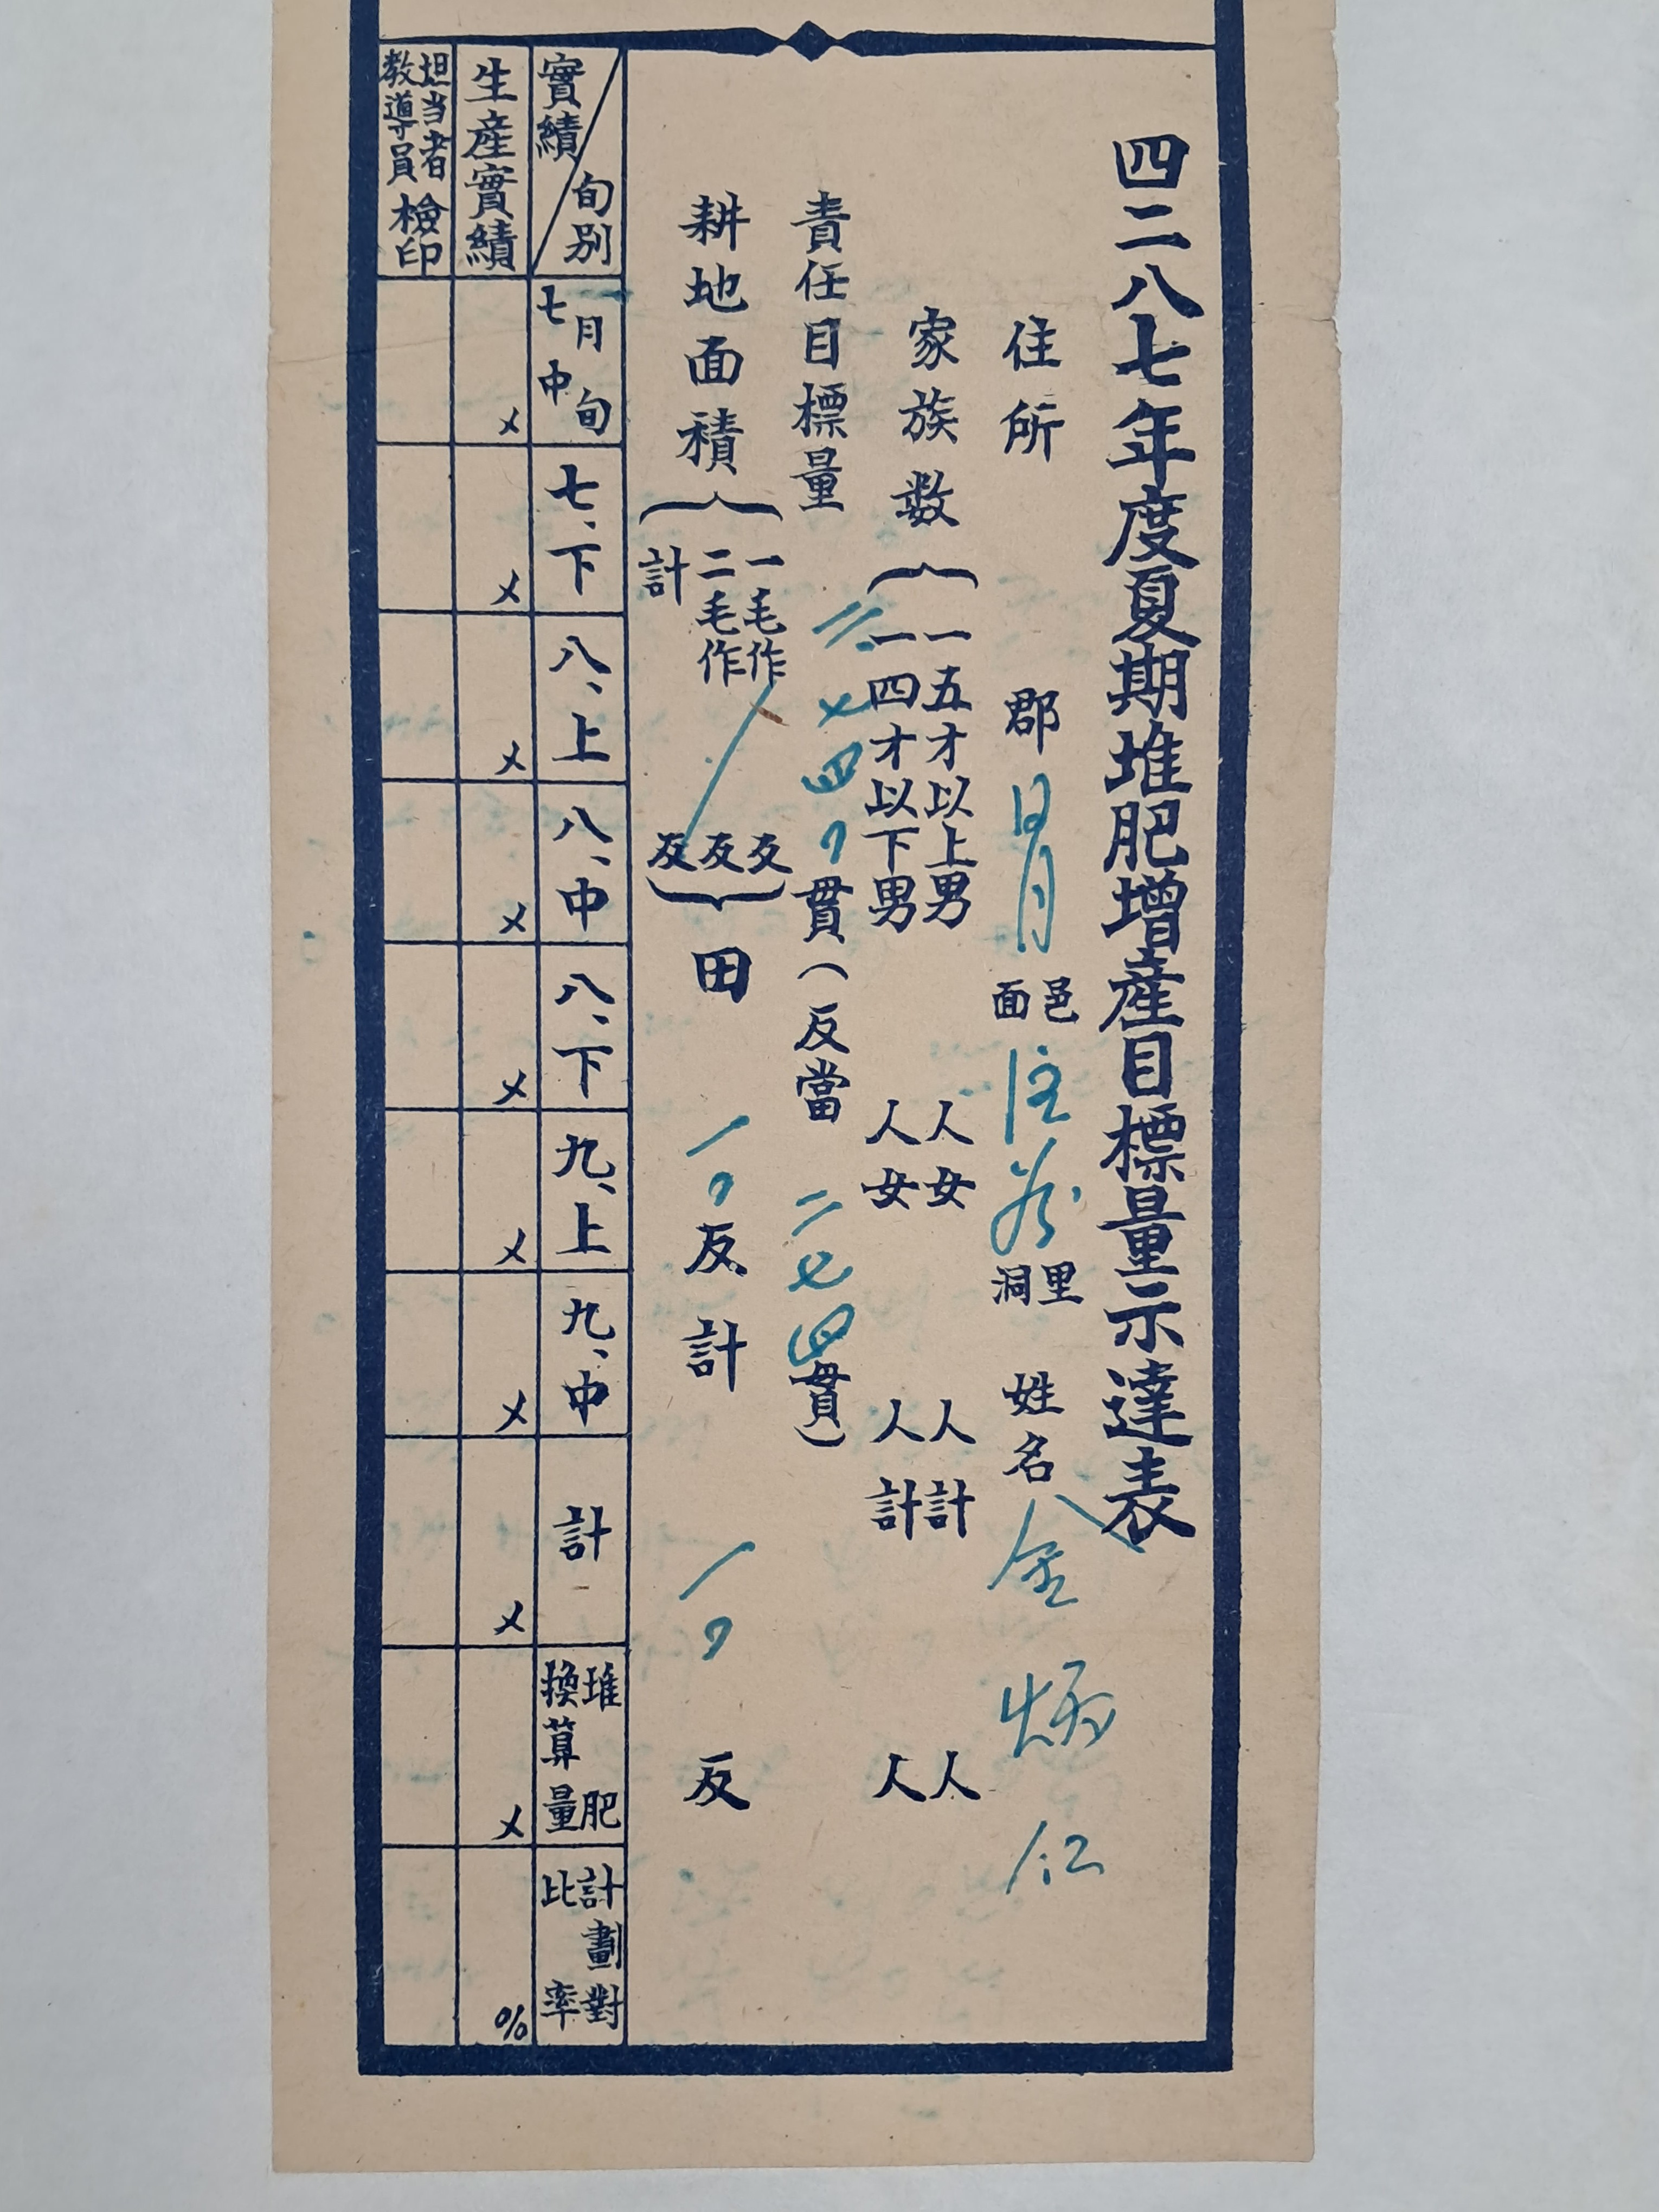 四二八七年度夏期堆肥增産目標量示達表
住所 郡 面邑 洞里 姓名 金炳仁
家族数
一五才以上男 人女 人計 人
一四才以下男 人女 人計 人
責任目標量 二、七四〇貫(反當 二七四貫)
耕地面積
一毛作 反
二毛作 反
計 反
田 一〇反計 一〇反
實績 旬別
七月中旬
七、下
八、上
八、中
八、下
九、上
九、中
計
堆肥換算量
計劃對比率
生産實績
メ
メ
メ
メ
メ
メ
メ
メ
メ
%
担当者
教導員
檢印